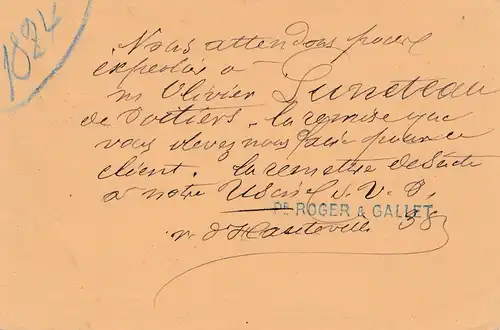 1824
Nous attendons pour
expédier à
m Olivier Luneteau
de Poitiers. la remise que
vous devez nous faire pour ce
client. la remettre de suite
à notre
Pr. ROGER & GALLET
r. d'Hauteville 38